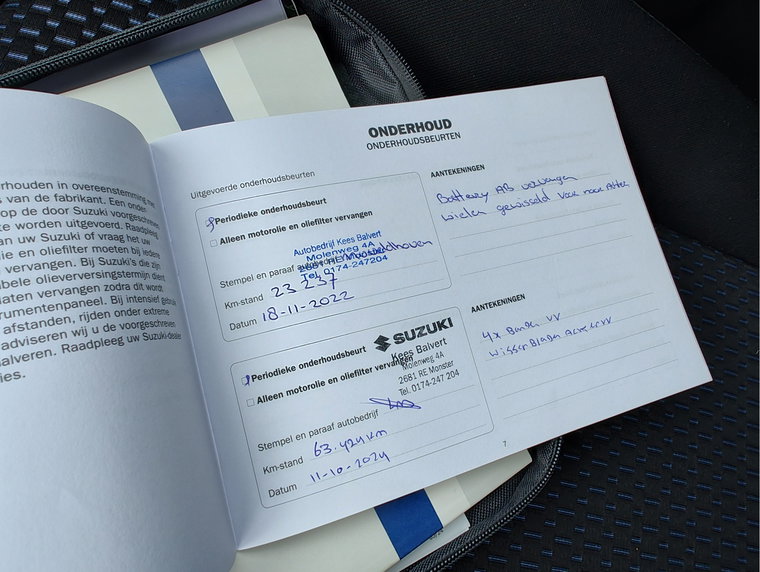 rhouden in overeenstemming met
s van de fabrikant. Een onder-
op de door Suzuki voorgeschreven
te worden uitgevoerd. Raadpleeg
an uw Suzuki of vraag het uw
ie en oliefilter moeten bij iedere
vervangen. Bij Suzuki's die zijn
bele olieverversingstermijn dient
laten vervangen zodra dit wordt
rumentenpaneel. Bij intensief gebruik
afstanden, rijden onder extreme
adviseren wij u de voorgeschreven
alveren. Raadpleeg uw Suzuki-dealer
ies.
ONDERHOUD
ONDERHOUDSBEURTEN
Uitgevoerde onderhoudsbeurten
Periodieke onderhoudsbeurt
Alleen motorolie en oliefilter vervangen
Autobedrijf Kees Balvert
Molenweg 4A
2681 RE Monster
Tel. 0174-247204
Stempel en paraaf autobedrijf
Km-stand 23 237
Datum 18-11-2022
AANTEKENINGEN
Battery AB vervangen
wielen gewisseld Voor naar Achter
Periodieke onderhoudsbeurt
Alleen motorolie en oliefilter vervangen
SUZUKI
Kees Balvert
Molenweg 4A
2681 RE Monster
Tel. 0174-247 204
Stempel en paraaf autobedrijf
Km-stand 63.424 km
Datum 11-10-2024
AANTEKENINGEN
4x Banden VV
Wisserbladen
7